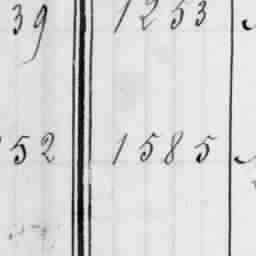 39 1253
52 1585